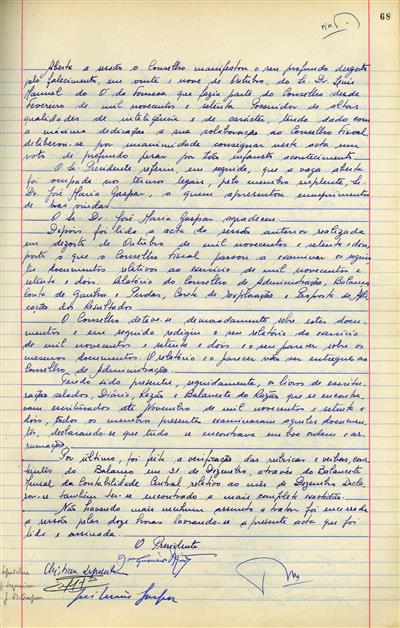 68
Aberta a sessão o Conselho manifestou o seu profundo desgosto
pelo falecimento, em vinte e nove de Outubro, do Sr. Dr. Luis
Manuel do O da Fonseca que fazia parte do Conselho desde
Fevereiro de mil novecentos e setenta. Possuidor de altas
qualidades de inteligência e de carácter, tendo dado com
a máxima dedicação a sua colaboração ao Conselho Fiscal,
deliberou-se por unanimidade consignar nesta acta um
voto de profundo pesar por tão infausto acontecimento.
O Sr. Presidente referiu, em seguida, que a vaga aberta
foi ocupada nos termos legais, pelo membro suplente, Sr.
Dr. José Maria Gaspar, a quem apresentou cumprimentos
de boas vindas.
O Sr. Dr. José Maria Gaspar agradeceu.
Depois foi lida a acta da sessão anterior realizada
em dezoito de Outubro de mil novecentos e setenta e dois,
posto o que o Conselho Fiscal passou a examinar os seguin-
tes documentos relativos ao exercício de mil novecentos e
setenta e dois: Relatório do Conselho de Administração, Balanço,
Conta de Ganhos e Perdas, Conta de Exploração e Proposta de Apli-
cação dos Resultados.
O Conselho deteve-se demoradamente sobre estes docu-
mentos e em seguida redigiu o seu relatório do exercício
de mil novecentos e setenta e dois e o seu parecer sobre os
mesmos documentos. O relatório e o parecer vão ser entregues ao
Conselho de Administração.
Tendo sido presentes, seguidamente, os livros de escritu-
ração selados, Diário, Razão e Balancete do Razão que se encontra-
vam escriturados até Novembro de mil novecentos e setenta e
dois, todos os membros presentes examinaram aqueles documen-
tos, declarando-se que tudo se encontrava em boa ordem e ar-
rumação.
Por último, foi feita a verificação das rubricas e verbas cons-
tantes do Balanço em 31 de Dezembro, através do Balancete
Mensal da Contabilidade Central relativo ao mês de Dezembro. Decla-
rou-se também ter-se encontrado a mais completa exactidão.
Não havendo mais nenhum assunto a tratar foi encerrada
a sessão pelas doze horas lavrando-se a presente acta que foi
lida e assinada.
O Presidente
José Maria Gaspar